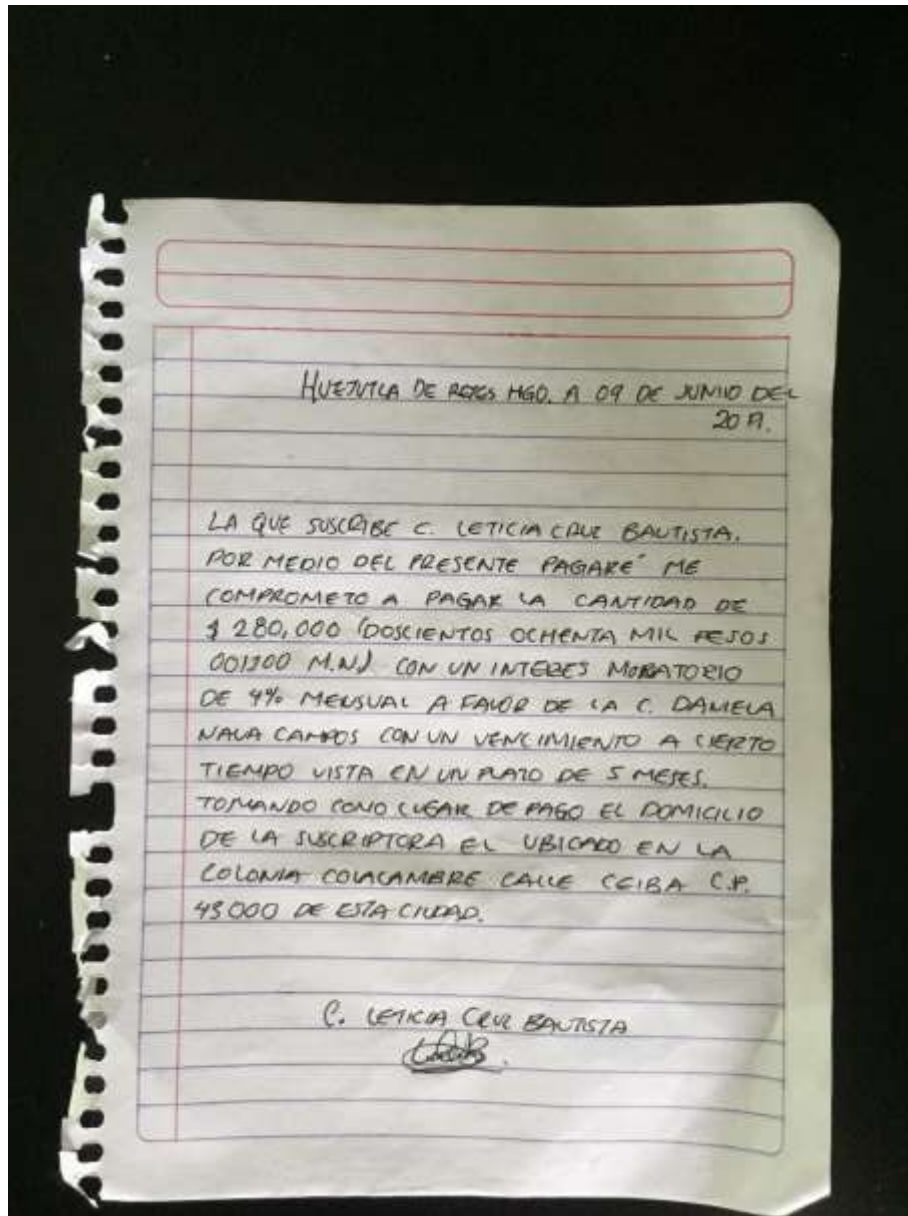 HUEJUTLA DE REYES HGO. A 09 DE JUNIO DEL
2019.
LA QUE SUSCRIBE C. LETICIA CRUZ BAUTISTA.
POR MEDIO DEL PRESENTE PAGARÉ ME
COMPROMETO A PAGAR LA CANTIDAD DE
$ 280,000 (DOSCIENTOS OCHENTA MIL PESOS
00/100 M.N.) CON UN INTERES MORATORIO
DE 4% MENSUAL A FAVOR DE LA C. DANIELA
NAVA CAMPOS CON UN VENCIMIENTO A CIERTO
TIEMPO VISTA EN UN PLAZO DE 5 MESES.
TOMANDO COMO LUGAR DE PAGO EL DOMICILIO
DE LA SUSCRIPTORA EL UBICADO EN LA
COLONIA COLALAMBRE CALLE CEIBA C.P.
43000 DE ESTA CIUDAD.
C. LETICIA CRUZ BAUTISTA